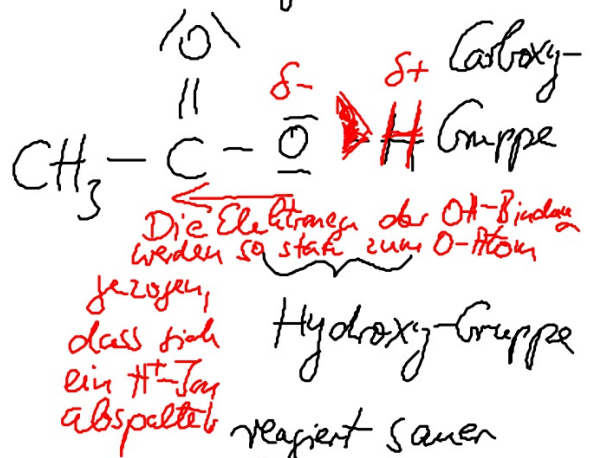 |O|
||
δ- δ+ Carboxy-
CH3 – C – O – H Gruppe
Die Elektronen der OH-Bindung
werden so stark zum O-Atom
gezogen,
dass sich
ein H+-Ion
abspaltet
Hydroxy-Gruppe
reagiert sauer